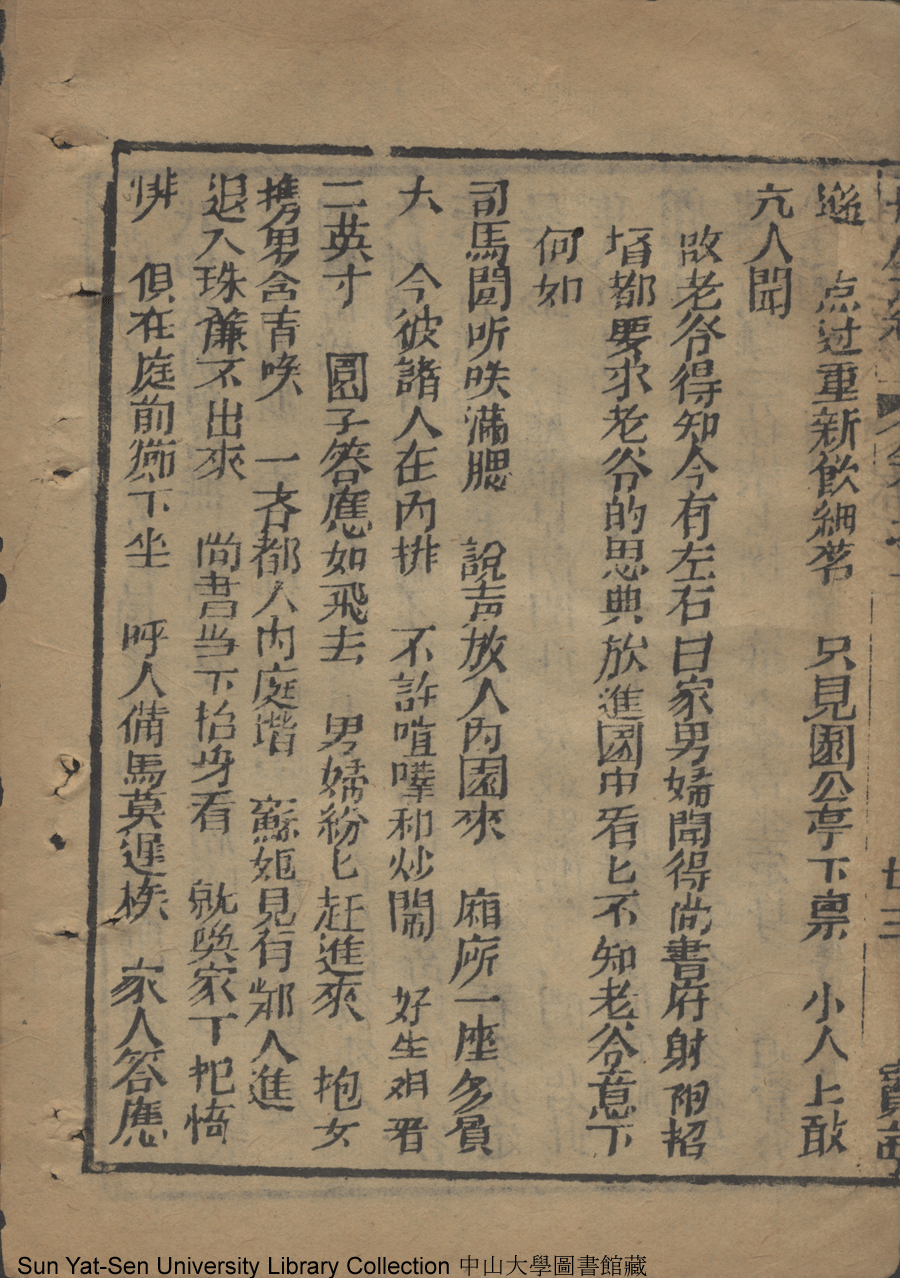 遊　点过重新飲細茗　只見園公亭下禀　小人上敢
亢人聞
故老爷得知今有左右日家男婦聞得尚書府射陌招
壻都要求老爷的恩典放進園中看匕不知老爷意下
何如
司馬聞听咲滿腮　說声放人內園來　廂所一座多員
大　今彼諸人在內排　不許喧嘩和炒鬧　好生看
二英才　園子答應如飛去　男婦紛匕赶進來　抱女
携男含害喚　一吝都人內庭堦　蘇姬見有鄰人進
退入珠簾不出來　尚書当下抬身看　就喚家下把椅
排　俱在庭前御下坐　呼人備馬莫遲挨　家人答應
廿三
Sun Yat-Sen University Library Collection 中山大學圖書館藏